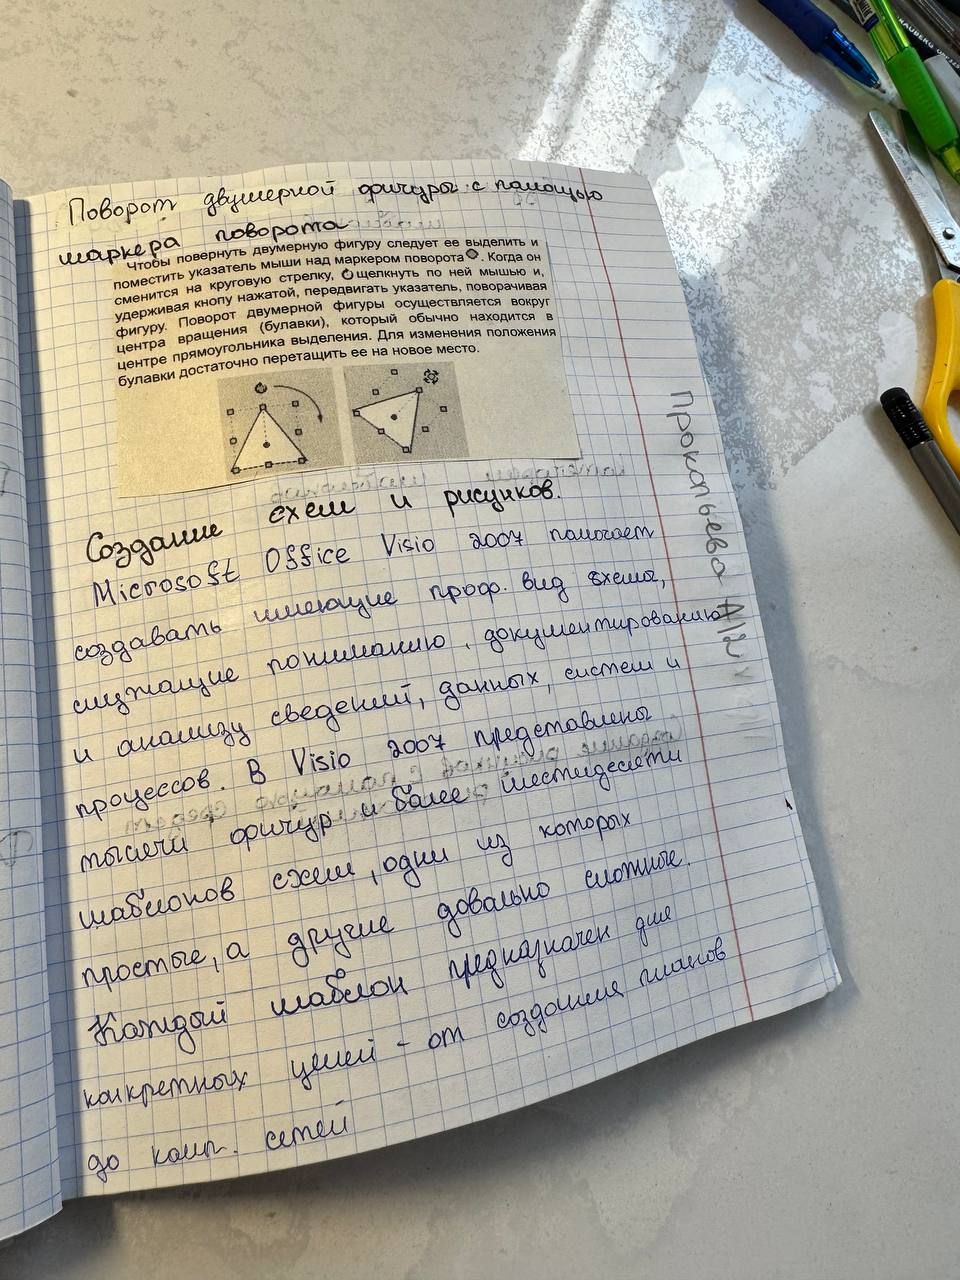 Поворот двумерной фигуры с помощью
маркера поворота
Чтобы повернуть двумерную фигуру следует ее выделить и
поместить указатель мыши над маркером поворота . Когда он
сменится на круговую стрелку, щелкнуть по ней мышью и,
удерживая кнопу нажатой, передвигать указатель, поворачивая
фигуру. Поворот двумерной фигуры осуществляется вокруг
центра вращения (булавки), который обычно находится в
центре прямоугольника выделения. Для изменения положения
булавки достаточно перетащить ее на новое место.
Создание схем и рисунков.
Microsoft Office Visio 2007 помогает
создавать имеющие проф. вид схемы,
служащие пониманию, документированию
и анализу сведений, данных, систем и
процессов. В Visio 2007 представлены
тысячи фигур и более шестидесяти
шаблонов схем, одни из которых
простые, а другие довально сложные.
Каждый шаблон предназначен для
конкретных целей - от создания планов
до комп. сетей
Прокопьева